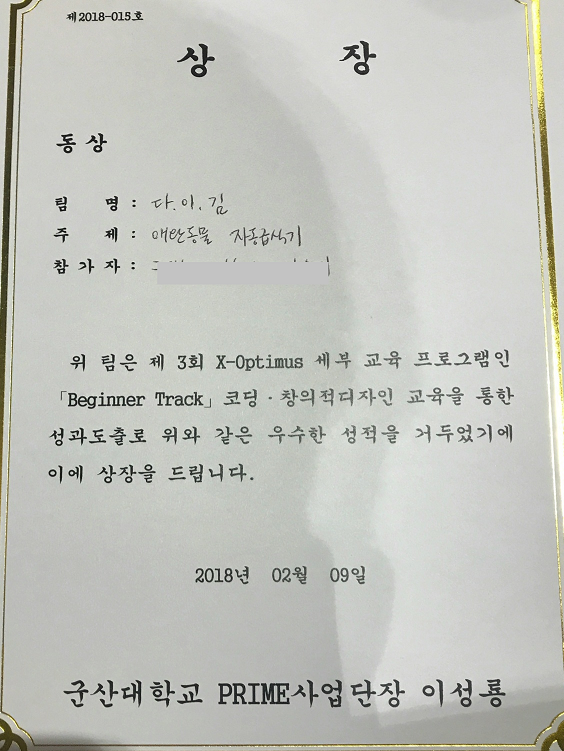 제2018-015호
상 장
동상
팀 명 : 다.이.김
주 제 : 애완동물 자동급식기
참가자 :
위 팀은 제 3회 X-Optimus 세부 교육 프로그램인
「Beginner Track」코딩·창의적디자인 교육을 통한
성과도출로 위와 같은 우수한 성적을 거두었기에
이에 상장을 드립니다.
2018년 02월 09일
군산대학교 PRIME사업단장 이성룡